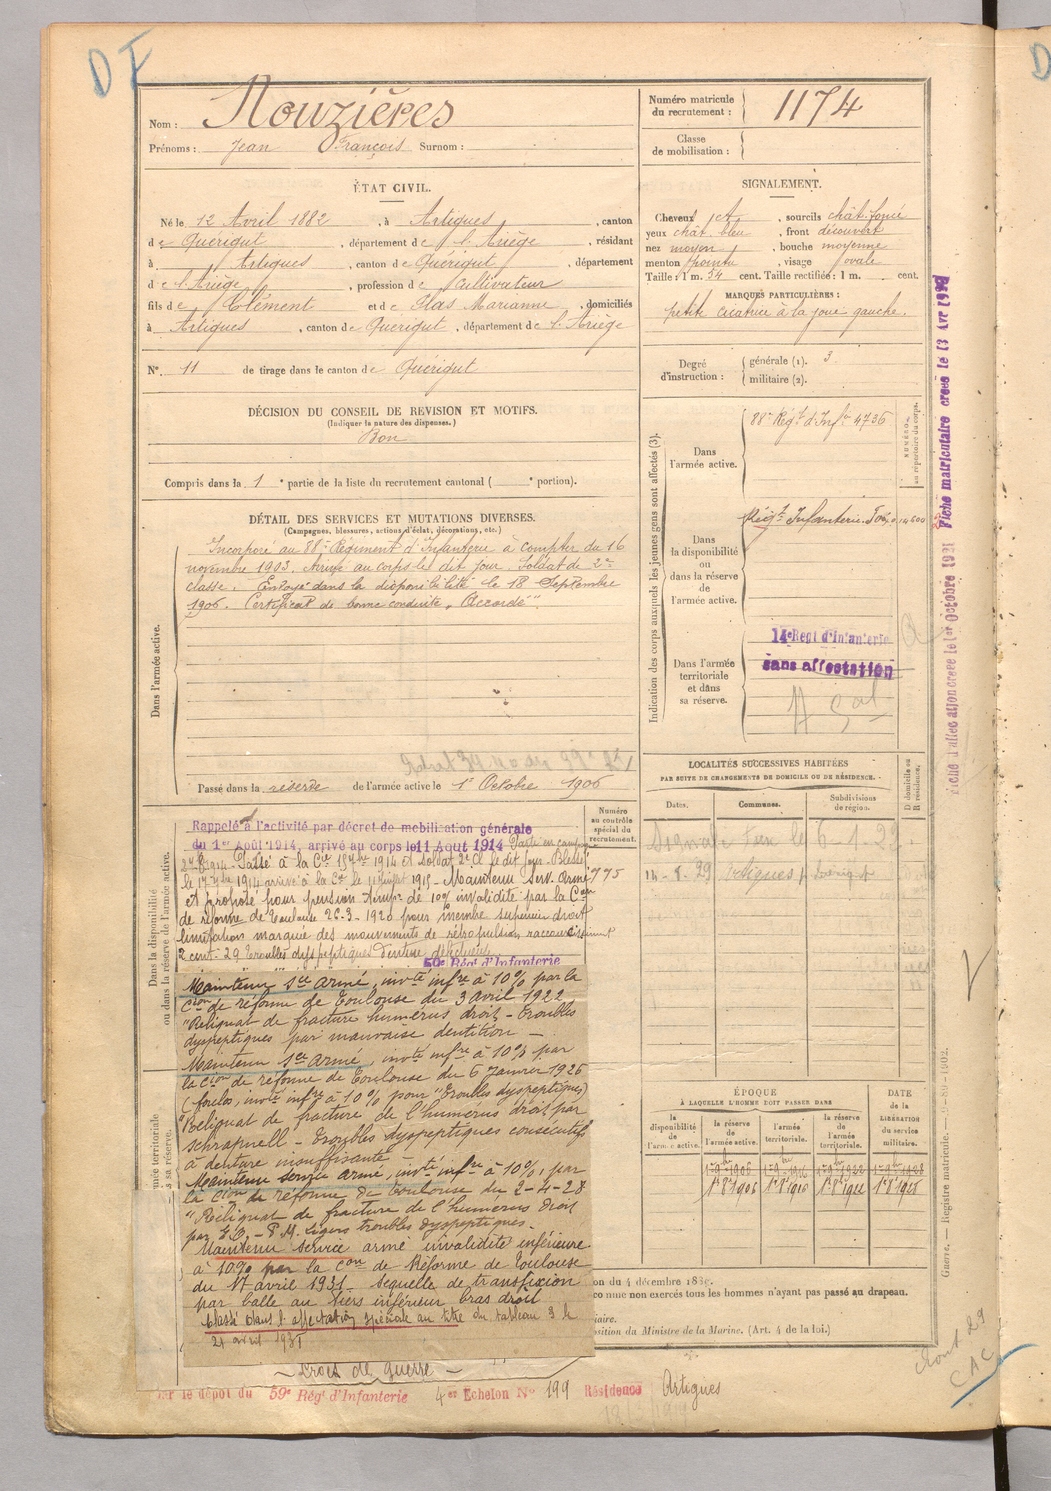 DF
Nom : Nouzières
Prénoms : Jean François Surnom :
Numéro matricule du recrutement : 1174
Classe de mobilisation :
ÉTAT CIVIL.
Né le 12 Avril 1882, à Artigues, canton
de Quérigut, département de l'Ariège, résidant
à Artigues, canton de Quérigut, département
de l'Ariège, profession de Cultivateur
fils de Clément et de Plas Marianne, domiciliés
à Artigues, canton de Quérigut, département de l'Ariège
N° 11 de tirage dans le canton de Quérigut
SIGNALEMENT.
Cheveux, sourcils chât. foncé
yeux chât. bleu, front découvert
nez moyen, bouche moyenne
menton pointu, visage ovale
Taille : 1 m. 54 cent. Taille rectifiée : 1 m. cent.
MARQUES PARTICULIÈRES :
petite cicatrice à la joue gauche.
Degré d'instruction : générale (1). 3
militaire (2).
DÉCISION DU CONSEIL DE REVISION ET MOTIFS.
(Indiquer la nature des dispenses.)
Bon
Compris dans la 1e partie de la liste du recrutement cantonal ( e portion).
DÉTAIL DES SERVICES ET MUTATIONS DIVERSES.
(Campagnes, blessures, actions d'éclat, décorations, etc.)
Dans l'armée active.
Incorporé au 88e Régiment d'Infanterie à compter du 16
novembre 1903. Arrivé au corps le dit jour. Soldat de 2e
classe. Envoyé dans la disponibilité le 18 Septembre
1906. Certificat de bonne conduite "Accordé".
Passé dans la réserve de l'armée active le 1er Octobre 1906
Indication des corps auxquels les jeunes gens sont affectés (3).
NUMÉRO au répertoire du corps.
Dans l'armée active.
88e Régt d'Infie 4736
Dans la disponibilité ou dans la réserve de l'armée active.
Régt Infanterie
Dans l'armée territoriale et dans sa réserve.
14e Regt d'Infanterie
sans affectation
Fiche matriculaire creee le 13 Avr
Fiche d'affectation creee le 1er Octobre 1931
LOCALITÉS SUCCESSIVES HABITÉES
PAR SUITE DE CHANGEMENTS DE DOMICILE OU DE RÉSIDENCE.
Dates. Communes. Subdivisions de région. D domicile ou R résidence.
Artigues
Numéro au contrôle spécial du recrutement.
775
Dans la disponibilité ou dans la réserve de l'armée active.
Rappelé à l'activité par décret de mobilisation générale
du 1er Août 1914, arrivé au corps le 11 Aout 1914 Parti en campagne
1914 Passé à la Cie 1914 et Soldat 2e Cl le dit jour. Blessé
le 17 1914 arrivé à la Cie le juillet 1915 - Maintenu Serv. Armé
et proposé pour pension temp. de 10% invalidité par la Con
de réforme de Toulouse 26-3-1920 pour membre supérieur droit
limitation marquée des mouvements de rétropulsion raccourcissement
2 cent - 2° Troubles dyspeptiques Denture défectueuse
50e Régt d'Infanterie
Maintenu See Armé, invté infre à 10% par la
Cion de réforme de Toulouse du 3 avril 1922
"Reliquat de fracture humérus droit - troubles
dyspeptiques par mauvaise dentition -
Maintenu See Armé, invté infre à 10% par
la Cion de réforme de Toulouse du 6 Janvier 1926
invté infre à 10% pour "Troubles dyspeptiques)
"Reliquat de fracture de l'humérus droit par
schrapnell - Troubles dyspeptiques consécutifs
à denture insuffisante -
Maintenu service armé, invté infre à 10%, par
la Cion de réforme de Toulouse du 2-4-28
"Reliquat de fracture de l'humérus droit
par E.O. - P.M. Légers troubles dyspeptiques -
Maintenu service armé invalidité inférieure
à 10% par la Con de Réforme de Toulouse
du 17 avril 1931. Sequelle de transfixion
par balle au tiers inférieur bras droit
Classé dans l'affectation spéciale au titre du tableau 3 le
21 avril
Croix de guerre
ÉPOQUE
À LAQUELLE L'HOMME DOIT PASSER DANS
la disponibilité de l'armée active.
la réserve de l'armée active.
l'armée territoriale.
la réserve de l'armée territoriale.
DATE de la LIBÉRATION du service militaire.
on du 4 décembre 18
comme non exercés tous les hommes n'ayant pas passé au drapeau.
iaire.
position du Ministre de la Marine. (Art. 4 de la loi.)
Guerre. — Registre matricule. — 1902.
le dépôt du 59e Régt d'Infanterie 4er Echelon N° 199 Résidence Artigues
CAC